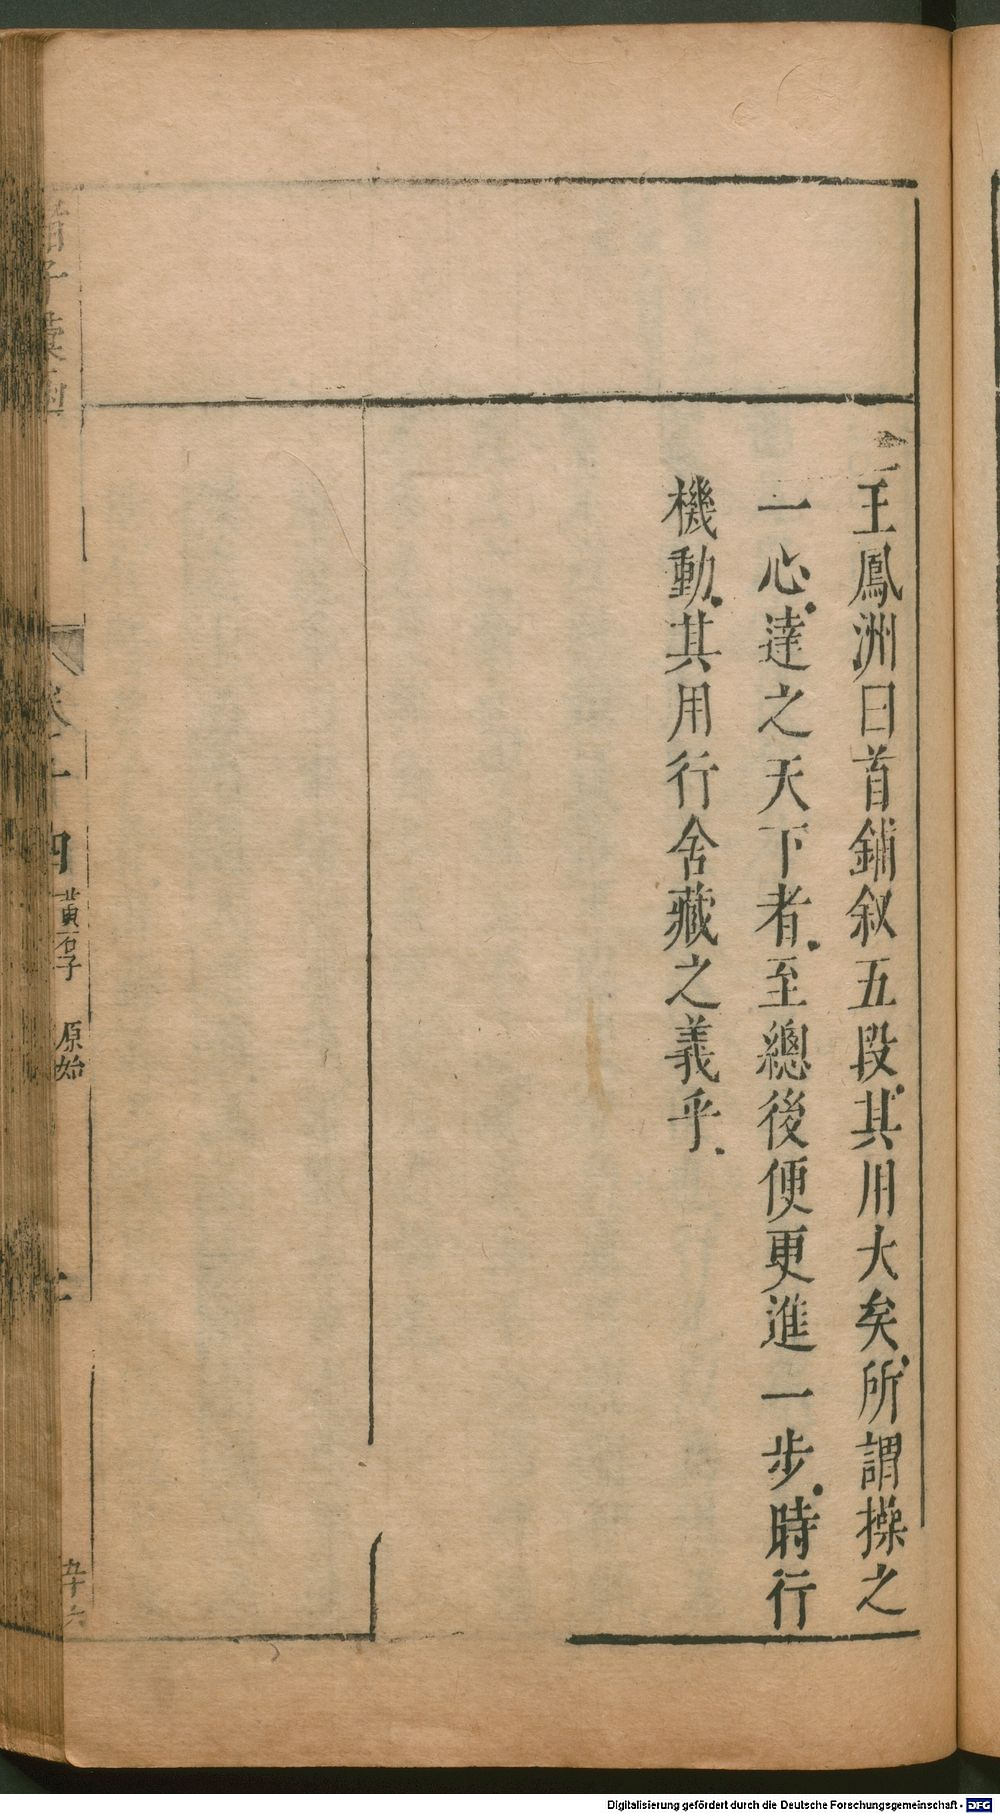 王鳳洲曰首鋪叙五段其用大矣所謂操之
一心達之天下者至總後便更進一步時行
機動其用行舍藏之義乎
諸子彙函
卷二十四
黃石子 原始
五十六
Digitalisierung gefördert durch die Deutsche Forschungsgemeinschaft - DFG